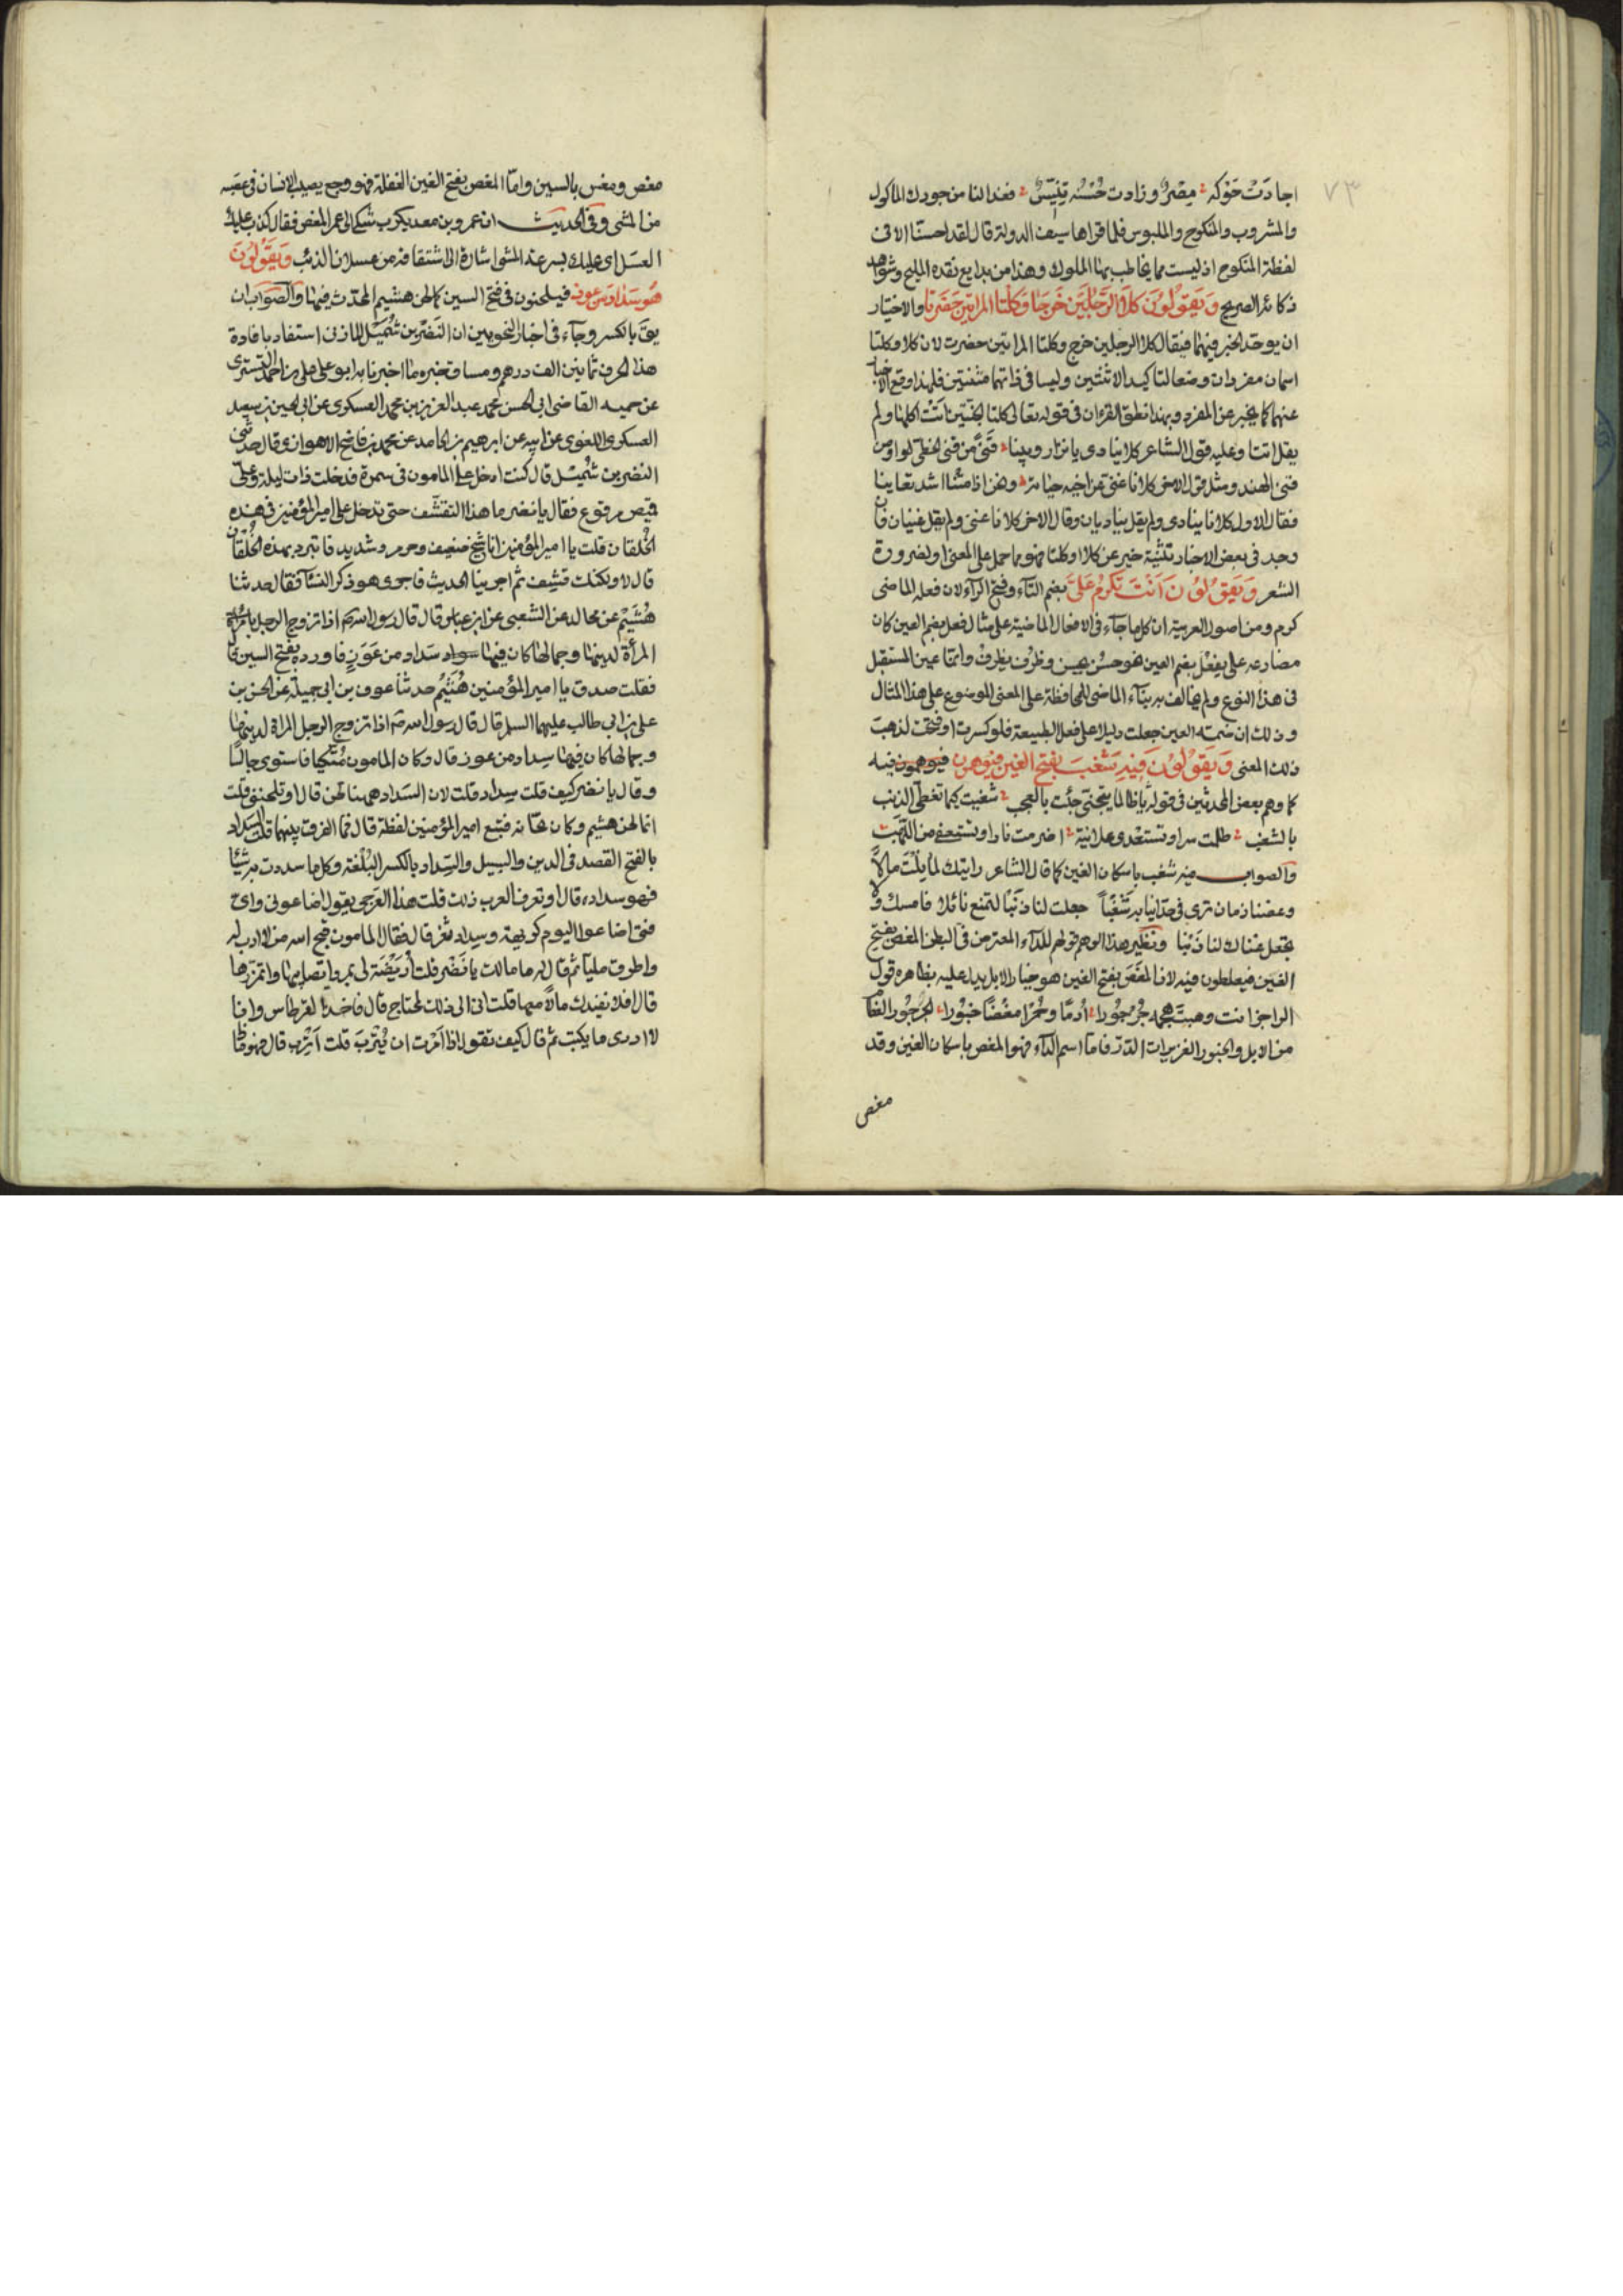 ٧٣
اجادَتْ حَوْكَه مِصْرٌ وزادت حُسْنَه تِنِّيسُ فغدا لنا من جودك الماكول
والمشروب والمنكوح والملبوس فلما قراها سيف الدولة قال لقد احسنّا الا فى
لفظة المنكوح اذ ليست مما يخاطب بها الملوك وهذا من بدايع نقده المليح وشواهد
ذكائه الصريح وَيَقُولُونَ كلَا الرَّجُلَيْنِ خَرَجَا وَكِلْتا المراتين حَضَرَتا والاختيار
ان يوحّد الخبر فيهما فيقال كلا الرجلين خرج وكلتا المراتين حضرت لان كلا وكلتا
اسمان مفردان وضعا لتاكيد الاثنتين وليسا فى ذاتهما مثنتين فلهذا وقع الاخبار
عنهما كما يخبر عن المفرد وبهذا نطق القرءان فى قوله تعالى كلتا الجنّتين اتَتْ اكلها ولم
يقل اتتا وعليه قول الشاعر كلانا ينادى يا نزار وبيننا قَنًى من قنى الخطى او من
قنى الهند ومثل قول الاخر كلانا غنى عن اخيه حياته ونحن اذا متنا اشد تغاينا
فقال الاول كلانا ينادى ولم يقل يناديان وقال الاخر كلانا غنى ولم يقل غنيان فان
وجد فى بعض الاخبار تثنية خبر عن كلا وكلتا فهو مما حمل على المعنى او لضرورة
الشعر وَيَقُولُونَ اَنْتَ تَكْرُمُ عَلَىَّ بضم التاء وفتح الراء لان فعله الماضى
كرم ومن اصول العربية ان كل ما جاء فى الافعال الماضية على مثال فعل بضم العين كان
مضارعه على يفعُل بضم العين نحو حسُن يحسن وظرُف يظرف وانما عين المستقبل
فى هذا النوع ولم يخالف به بناء الماضى للمحافظة على المعنى الموضوع على هذا المثال
وذلك ان ضمة العين جعلت دليلا على فعل الطبيعة فلو كسرت او فتحت لذهبت
ذلك المعنى وَيَقُولُونَ فِيهِ شَغَبَ بفتح الغين فيوهمون فيه
كما وهم بعض المحدثين فى قوله يا ظالما يتجنّى جئت بالعجب شغبت كيما تغطّى الذنب
بالشغب ظلمت سرا وتستعدى علانية اضرمت نارا وتستعفى من اللّهب
والصواب فيه شغب باسكان الغين كما قال الشاعر رايتك لما نلت مالا
وعضنا زمان ترى فى حد انيابه شغْباً جعلت لنا ذنبًا لتمنع نائلا فامسك ولا
تجعل غناك لنا ذنبا ونظير هذا الوهم قولهم للداء المعترض فى البطن المغص بفتح
الغين فيغلطون فيه لان المغَص بفتح الغين هو خيار الابل يدل عليه بظاهره قول
الراجز انت وهبت هجمة جُرْجُورا اُدمًا وحُمْرًا مَغَصًا خبُورا الجرجور العظام
من الابل والخبور الغزيرات الدر فاما اسم الداء فهو المغص باسكان الغين وقد
مغص
مغص ومغس بالسين وامّا المعص بفتح العين الغفلة فهو وجع يصيب الانسان فى عصبه
من المشى وفى الحديث ان عمرو بن معديكرب شكى الى عمر المعص فقال كذب عليك
العسل اى عليك بسرعة المشى اشارة الى اشتقاقه من عسلان الذئب وَيَقُولُونَ
هُو سَدَاد من عوز فيلحنون فى فتح السين كما لحن هشيم المحدث فيها والصواب ان
يقّ بالكسر وجاء فى اخبار النحويين ان النضر بن شُمَيْل المازنى استفاد بافادة
هذا الحرف ثمانين الف درهم ومساق خبره ما اخبرنا به ابو على على بن احمد التسترى
عن حميه القاضى ابى الحسن محمد عبد العزيز بن محمد العسكرى عن ابى الحسين بن سعيد
العسكرى اللغوى عن ابيه عن ابرهيم بن الحامد عن محمد بن فاضح الاهوازى قال حدثنى
النضر بن شُمَيْل قال كنت ادخل على المامون فى سمرة فدخلت ذات ليلة وعلىّ
قميص مرقوع فقال يا نضر ما هذا التقشّف حتى تدخل على امير المؤمنين فى هذه
الخُلقان قلت يا امير المؤمنين انا شيخ ضعيف وحر مرو شديد فاتبرد بهذه الخُلْقان
قال لا ولكنك قشِف ثم اجرينا الحديث فاجرى هو ذكر النساء فقال حدثنا
هُشَيْم عن مجالد عن الشعبى عن ابن عباس قال قال رسول الله ص اذا تزوج الرجل بامراة
المرأة لدينها وجمالها كان فيها سواد سَداد من عَوَزٍ فاورده بفتح السين قال
فقلت صدق يا امير المؤمنين هُشَيْم حدثنا عوف بن ابى جميلة عن الحسن بن
على بن ابى طالب عليهما السلم قال قال رسول الله ص اذا تزوج الرجل المراة لدينها
وجمالها كان فيها سِداد من عوز قال وكان المامون مُتّكِئا فاستوى جالسًا
وقال يا نضر كيف قلت سِداد قلت لان السَداد ههنا لحن قال او تلحننى قلت
انما لحن هشيم وكان لحّانه فتبع امير المؤمنين لفظة قال فما الفرق بينهما قلت السَداد
بالفتح القصد فى الدين والسبيل والسِداد بالكسر البُلْغة وكل ما سددت به شيئا
فهو سداد، قال او تعرف العرب ذلك قلت هذا العَرْجى يقول اضاعونى واىّ
فتى اضاعوا ليوم كريهة وسِداد ثغر قال فقال المامون قبح الله من لا ادب له
واطرق مليّا ثم قال لى ما مالك يا نَضْر قلت اُرَيْضَة لى بمرو اتصابها واتمزّزها
قال افلا نفيدك مالا معها قلت انى الى ذلك لمحتاج قال فاخذ القرطاس وانا
لا ادرى ما يكتب ثم قال كيف تقول اذا اَمَرْت ان يُتْرِبَ قلت اَتْرِب قال فهو ماذا